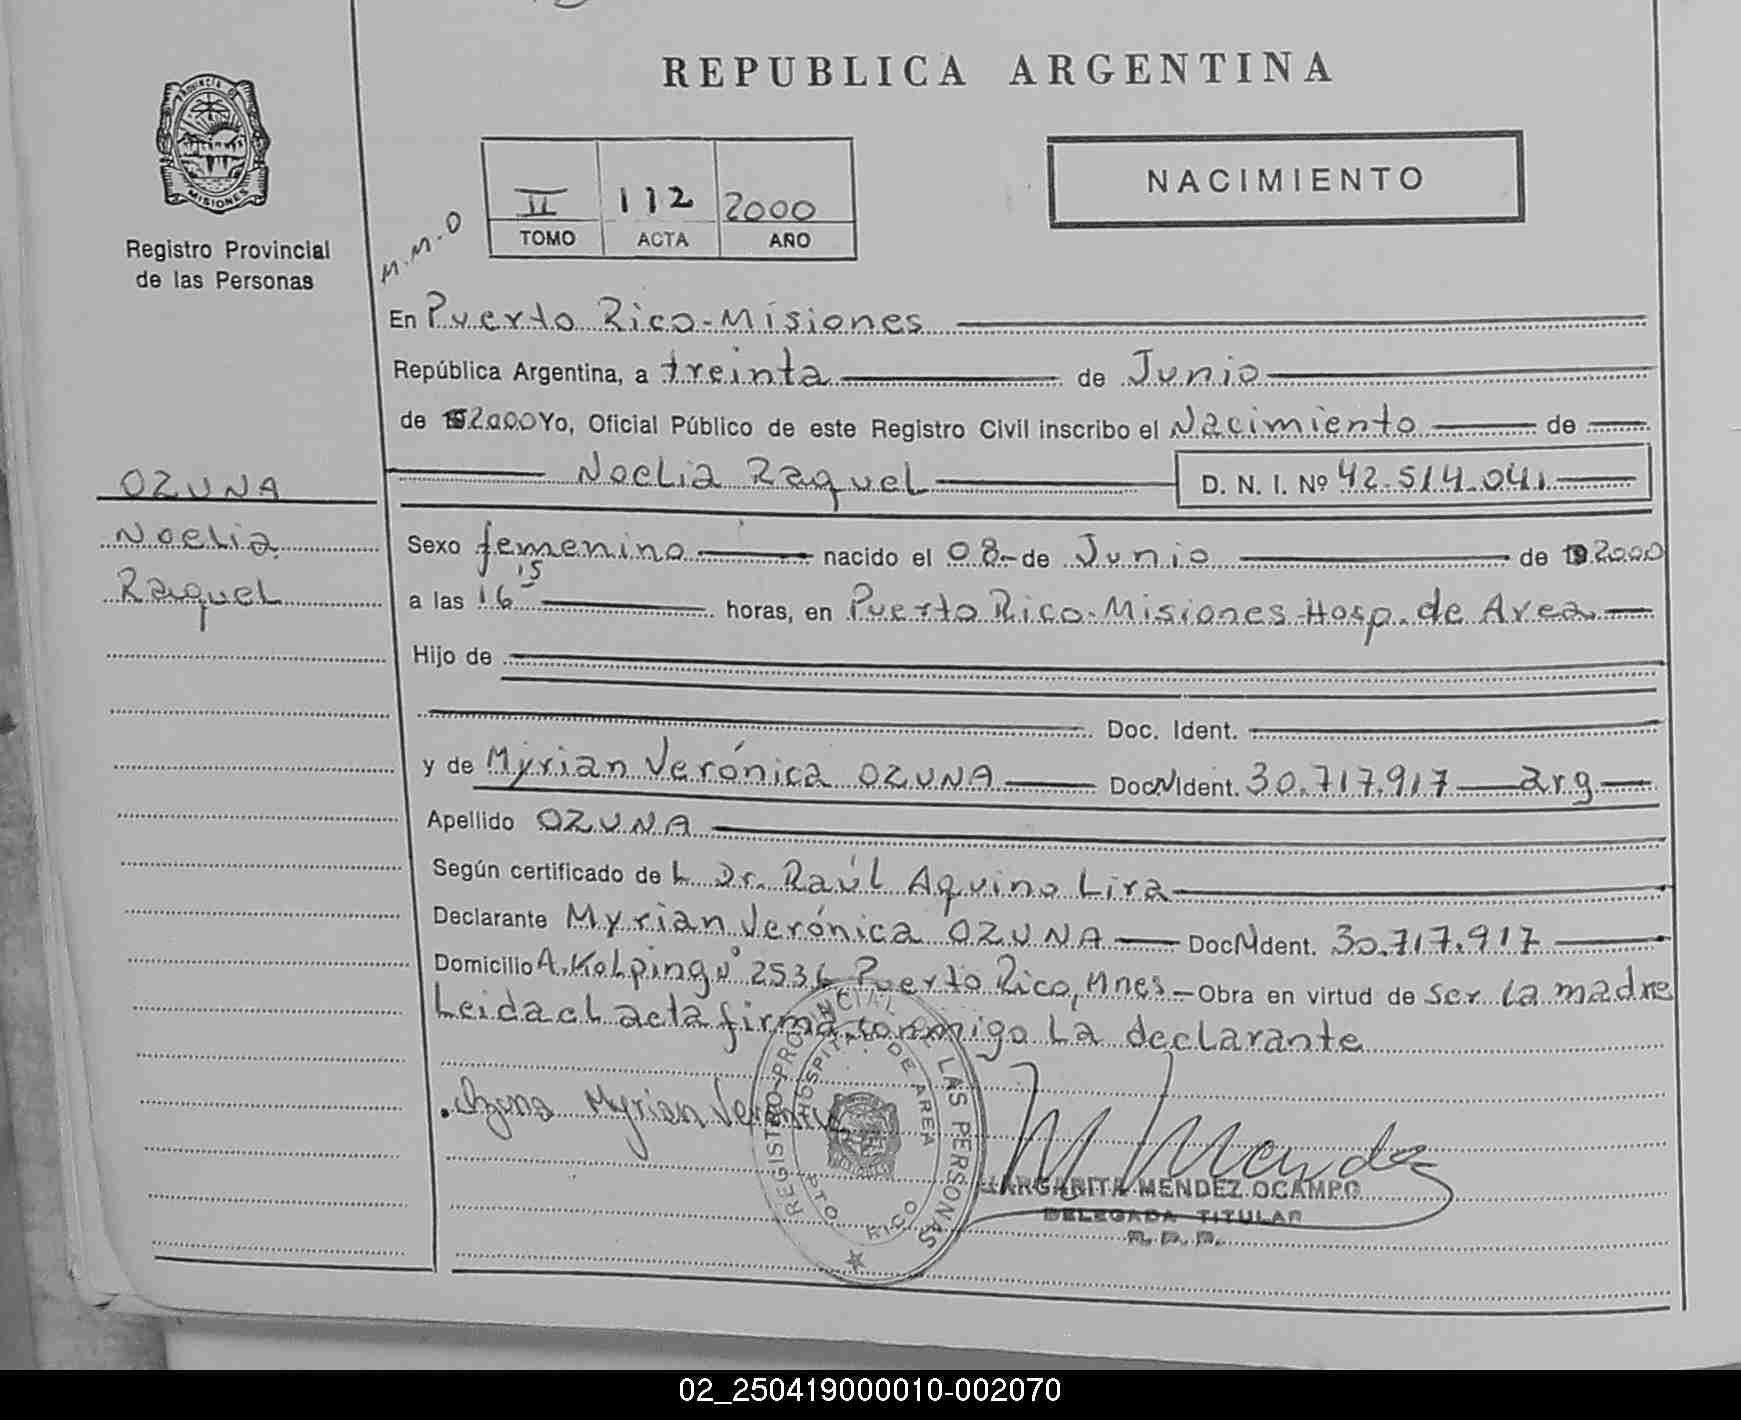 REPUBLICA ARGENTINA
PROVINCIA DE MISIONES
Registro Provincial
de las Personas
M.M.O
II 112 2000
TOMO ACTA AÑO
NACIMIENTO
En Puerto Rico-Misiones
República Argentina, a treinta de Junio
de 2000 Yo, Oficial Público de este Registro Civil inscribo el Nacimiento de
Noelia Raquel D. N. I. Nº 42.514.041
OZUNA
Noelia
Raquel
Sexo femenino nacido el 08- de Junio de 2000
a las 16 15 horas, en Puerto Rico-Misiones-Hosp. de Area
Hijo de
Doc. Ident.
y de Myrian Verónica OZUNA Doc N Ident. 30.717.917 arg
Apellido OZUNA
Según certificado de L Dr. Raúl Aquino Lira
Declarante Myrian Verónica OZUNA Doc N Ident. 30.717.917
Domicilio A. Kolping Nº 2536 Puerto Rico, Mnes - Obra en virtud de ser la madre
Leida el acta firma conmigo la declarante
Ozuna Myrian Veronica
REGISTRO PROVINCIAL DE LAS PERSONAS
HOSPITAL DE AREA
PTO RICO
MARGARITA MENDEZ OCAMPO
DELEGADA TITULAR
R. P. P.
02_250419000010-002070